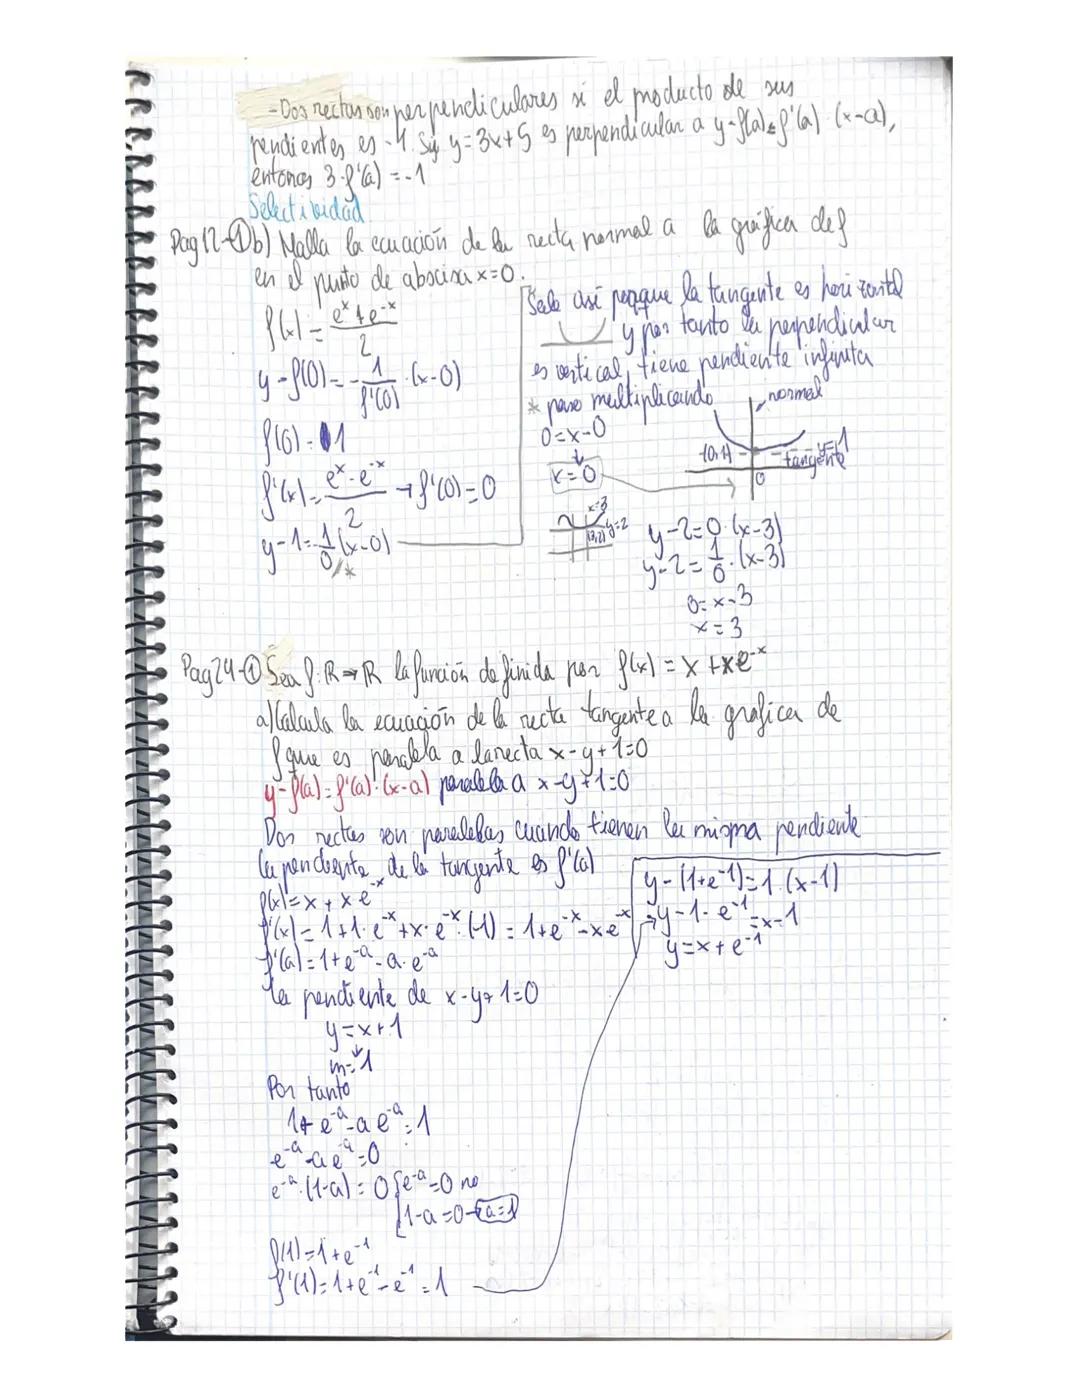 -Dos rectas son perpendiculares si el producto de sus
pendientes es -1. Si y=3x+5 es perpendicular a y-f(a)=f'(a)·(x-a),
entonces 3·f'(a)=-1
Selectividad
Pag 12-①b) Halla la ecuación de la recta normal a la gráfica de f
en el punto de abscisa x=0.
f(x)=(e^x+e^-x)/2
y-f(0)=-1/f'(0)·(x-0)
f(0)=1
f'(x)=(e^x-e^-x)/2→f'(0)=0
y-1=-1/0(x-0)
*
Sale así porque la tangente es horizontal
y por tanto la perpendicular
es vertical, tiene pendiente infinita
* paso multiplicando
0=x-0
x=0
normal
(0,1)
y=1
tangente
0
x=3
y=2
(3,2)
y-2=0·(x-3)
y-2=1/0·(x-3)
0=x-3
x=3
Pag 24-① Sea f:R→R la función definida por f(x)=x+xe^-x
a) Calcula la ecuación de la recta tangente a la gráfica de
f que es paralela a la recta x-y+1=0
y-f(a)=f'(a)·(x-a) paralela a x-y+1=0
Dos rectas son paralelas cuando tienen la misma pendiente
la pendiente de la tangente es f'(a)
f(x)=x+xe^-x
f'(x)=1+1·e^-x+x·e^-x·(-1)=1+e^-x-xe^-x
f'(a)=1+e^-a-a·e^-a
la pendiente de x-y+1=0
y=x+1
m=1
Por tanto
1+e^-a-ae^-a=1
e^-a-ae^-a=0
e^-a·(1-a)=0 {e^-a=0 no
1-a=0→a=1
f(1)=1+e^-1
f'(1)=1+e^-1-e^-1=1
y-(1+e^-1)=1·(x-1)
y-1-e^-1=x-1
y=x+e^-1